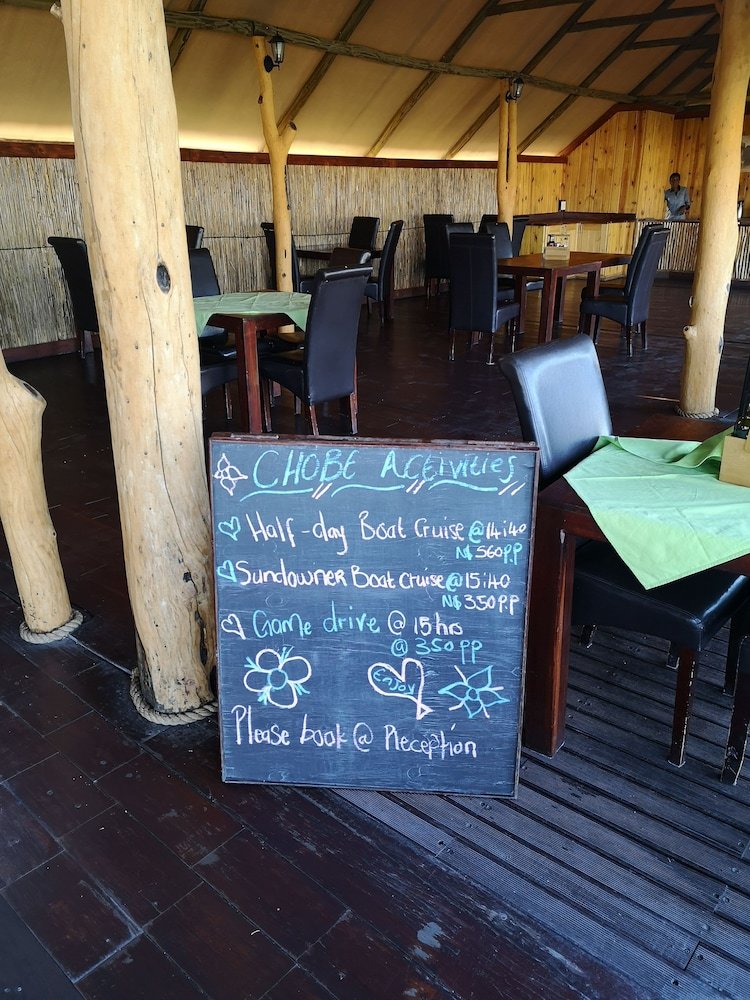 CHOBE ACTIVITIES
Half-day Boat Cruise @ 14:40
N$ 560 p.p
Sundowner Boat Cruise @ 15:40
N$ 350 p.p
Game drive @ 15hrs
@ 350 pp
Enjoy
Please book @ Reception